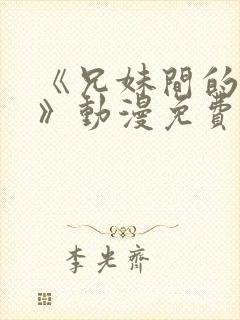 《兄妹間的
》動漫免費
李光齊